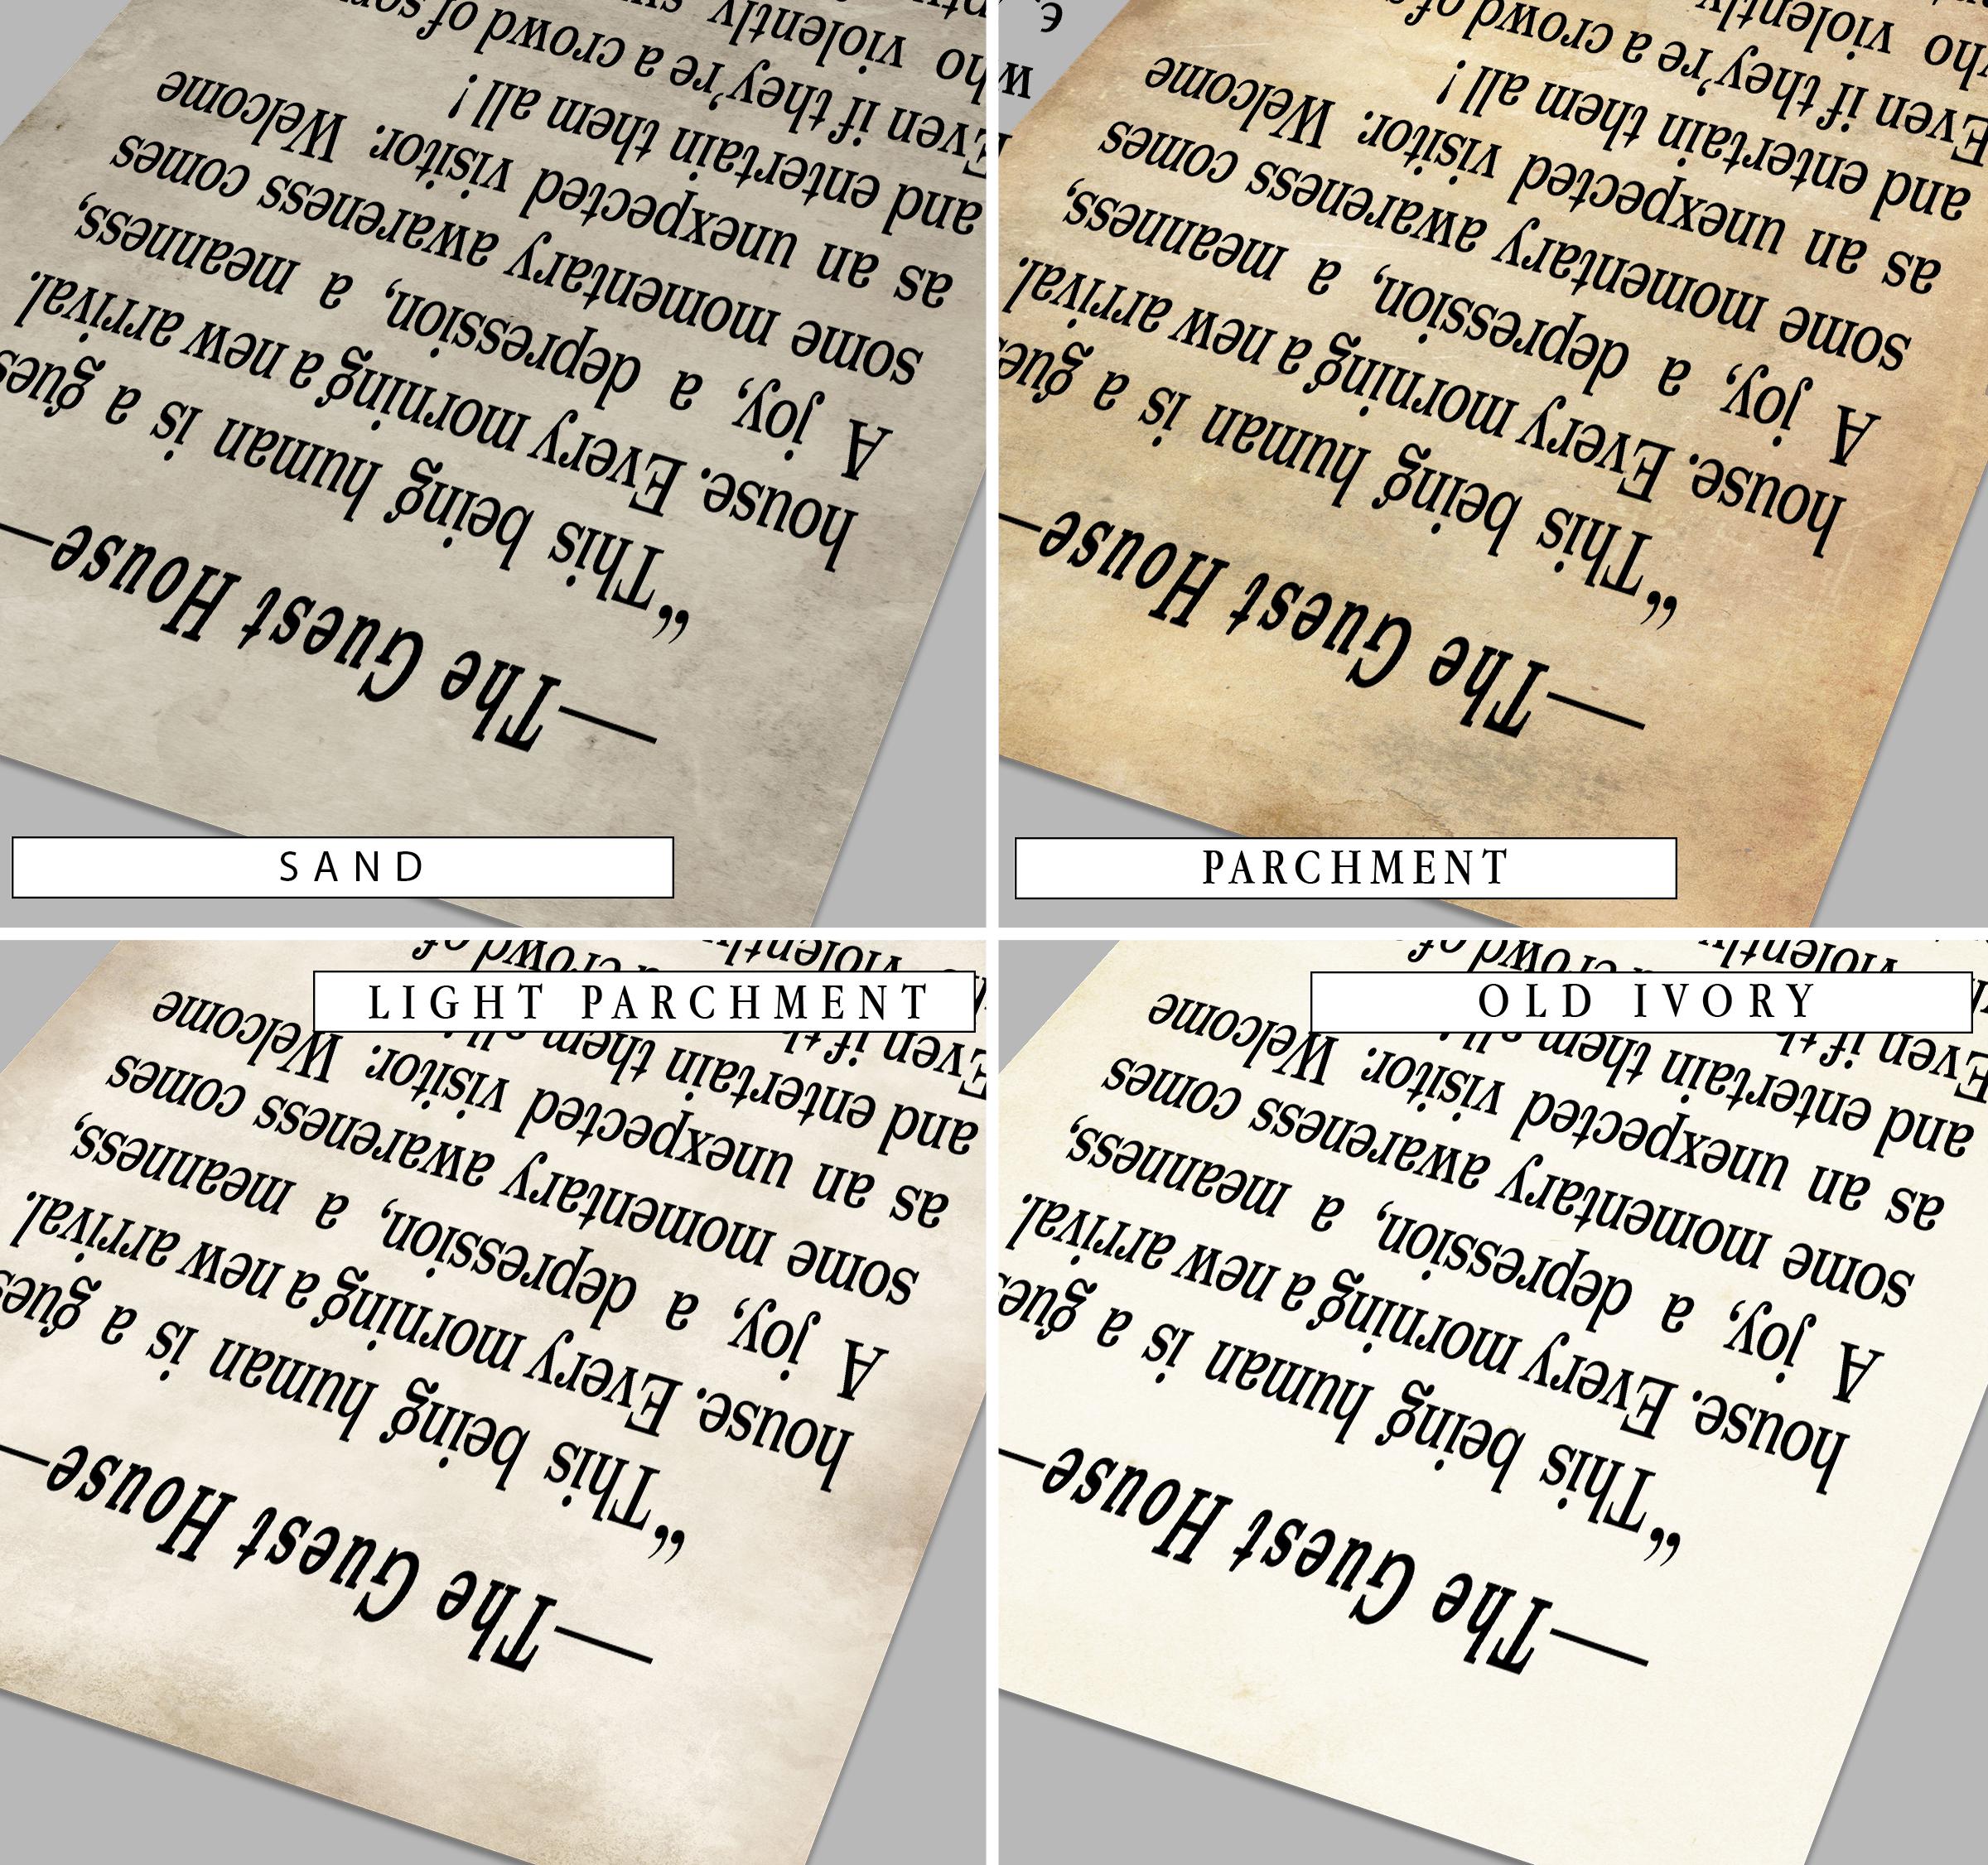 —The Guest House—
“This being human is a gues
house. Every morning a new arrival.
A joy, a depression, a meanness,
some momentary awareness comes
as an unexpected visitor. Welcome
and entertain them all!
Even if they’re a crowd of
ho violently
SAND
—The Guest House—
“This being human is a gues
house. Every morning a new arrival.
A joy, a depression, a meanness,
some momentary awareness comes
as an unexpected visitor. Welcome
and entertain them all!
Even if they’re a crowd of
ho violently
PARCHMENT
LIGHT PARCHMENT
—The Guest House—
“This being human is a gues
house. Every morning a new arrival.
A joy, a depression, a meanness,
some momentary awareness comes
as an unexpected visitor. Welcome
and entertain them all
Even if
crowd of
violently
OLD IVORY
—The Guest House—
“This being human is a gues
house. Every morning a new arrival.
A joy, a depression, a meanness,
some momentary awareness comes
as an unexpected visitor. Welcome
and entertain them
Even if
crowd of
violently